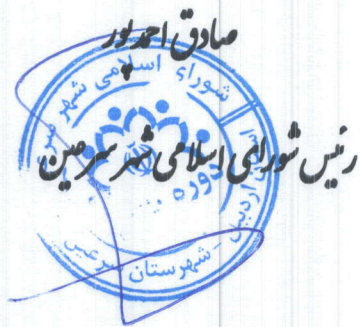 صادق احمدپور
رئیس شورای اسلامی شهر سرعین
شورای اسلامی شهر
دوره
اردبیل - شهرستان سرعین